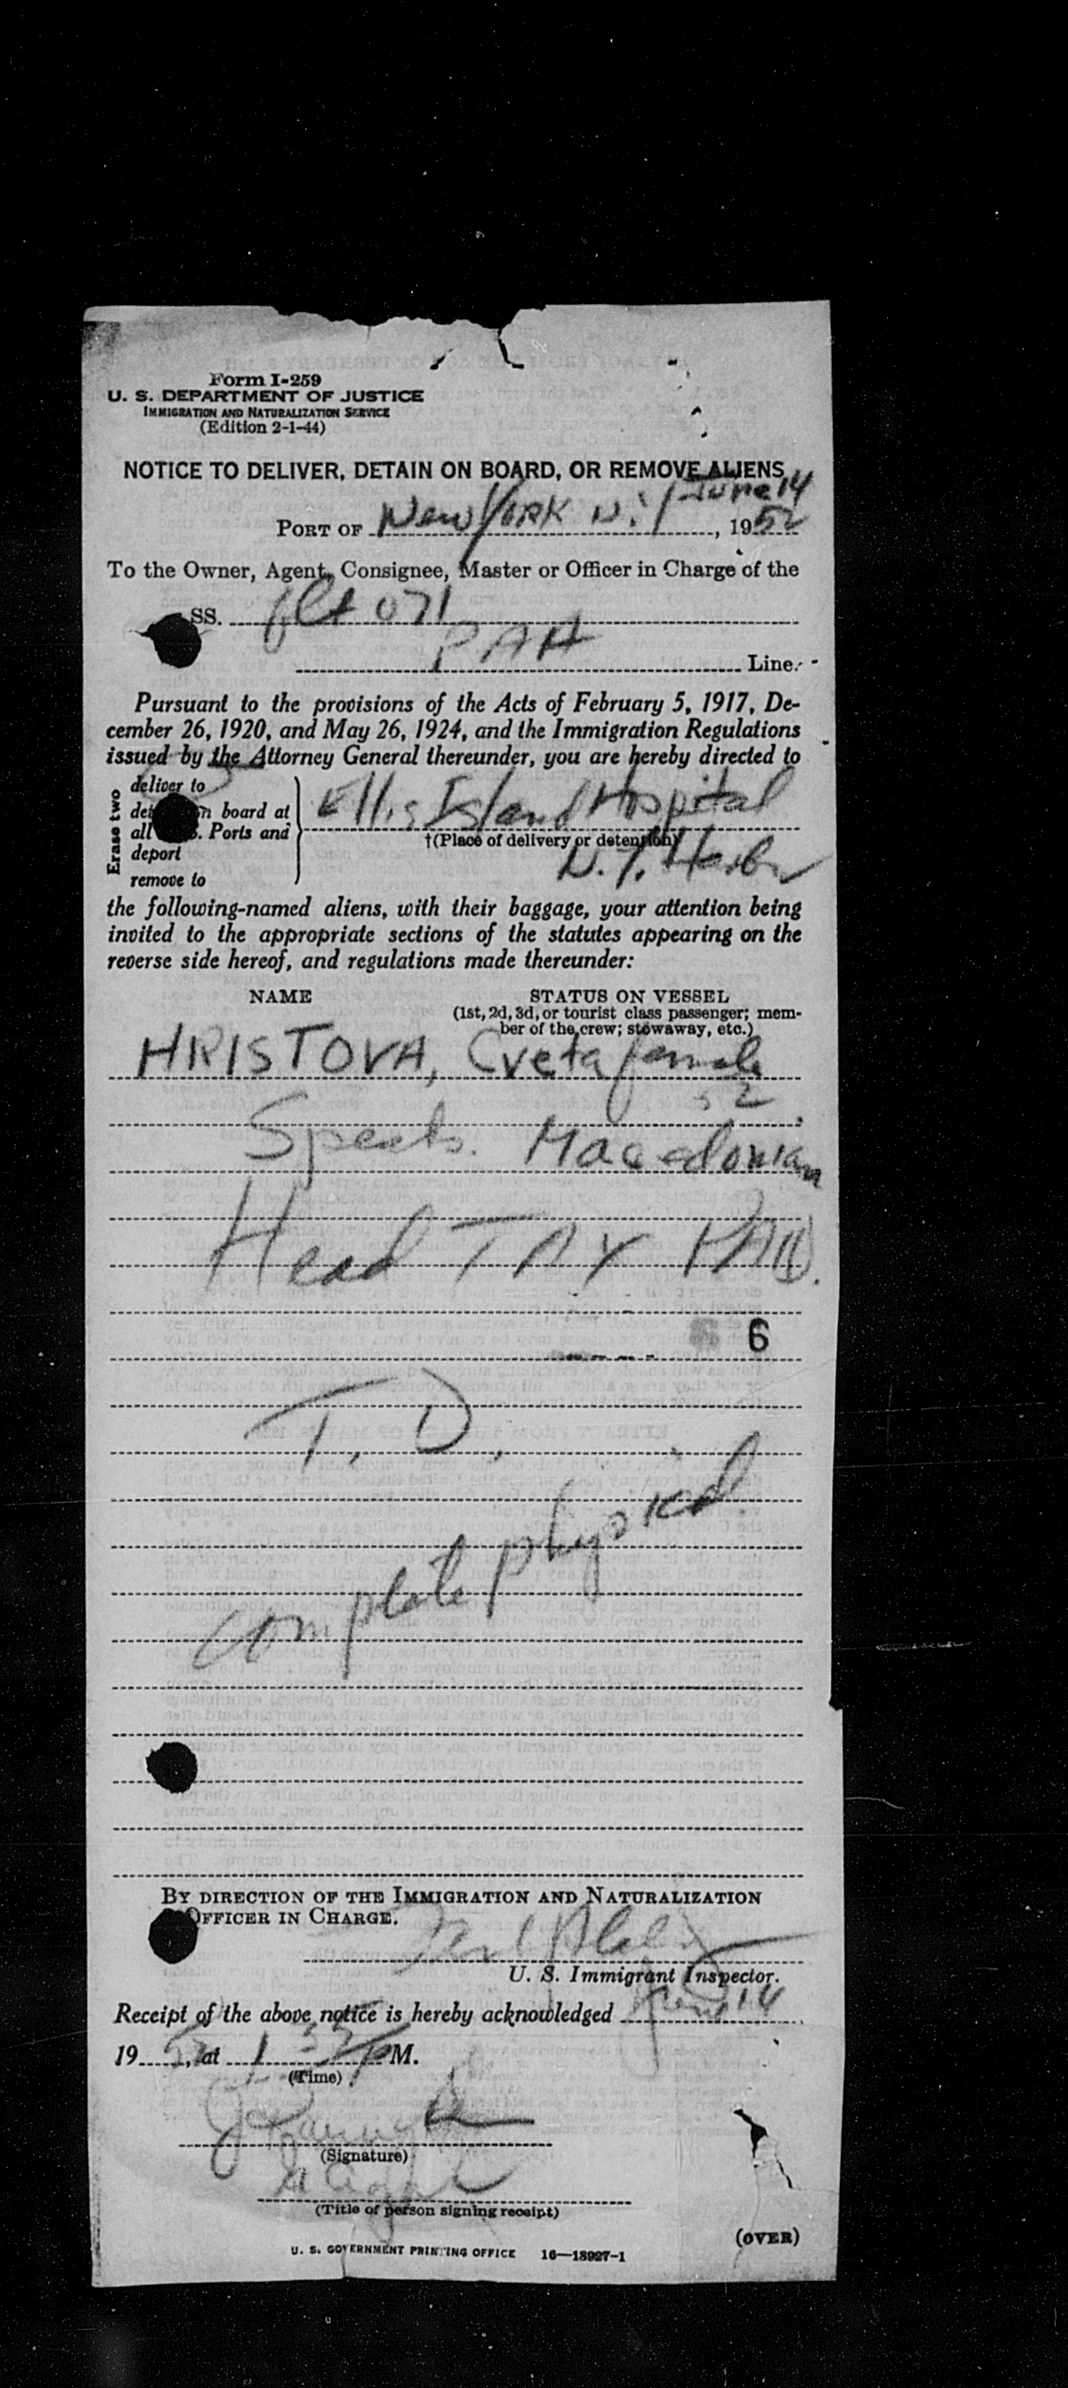 Form I-259
U. S. DEPARTMENT OF JUSTICE
IMMIGRATION AND NATURALIZATION SERVICE
(Edition 2-1-44)
NOTICE TO DELIVER, DETAIN ON BOARD, OR REMOVE ALIENS
PORT OF New York N.Y. June 14, 1952
To the Owner, Agent, Consignee, Master or Officer in Charge of the
SS. flt 071
PAA Line.
Pursuant to the provisions of the Acts of February 5, 1917, De-
cember 26, 1920, and May 26, 1924, and the Immigration Regulations
issued by the Attorney General thereunder, you are hereby directed to
Erase two
deliver to
board at
all Ports and
deport
remove to
Ellis Island Hospital
†(Place of delivery or detention)
N.Y. Harbor
the following-named aliens, with their baggage, your attention being
invited to the appropriate sections of the statutes appearing on the
reverse side hereof, and regulations made thereunder:
NAME STATUS ON VESSEL
(1st, 2d, 3d, or tourist class passenger; mem-
ber of the crew; stowaway, etc.)
HRISTOVA, Cveta female
52
Speaks Macedonian
Head TAX PAID.
6
T. D.
complete physical
BY DIRECTION OF THE IMMIGRATION AND NATURALIZATION
OFFICER IN CHARGE.
U. S. Immigrant Inspector.
Receipt of the above notice is hereby acknowledged June 14
1952, at 1 PM.
(Time)
(Signature)
(Title of person signing receipt)
U. S. GOVERNMENT PRINTING OFFICE 16—13927-1
(OVER)